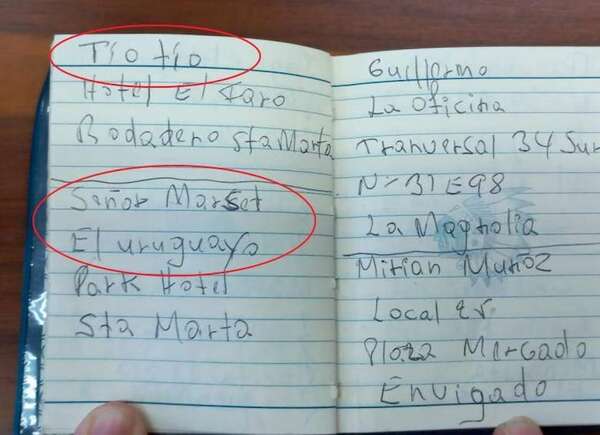 Tio tio
Hotel El Faro
Rodadero Sta Marta
Señor Marset
El uruguayo
Park Hotel
Sta Marta
Guillermo
La Oficina
Tranversal 34 Sur
N- 31E98
La Magnolia
Mirian Muñoz
Local
Plaza Mercado
Envigado